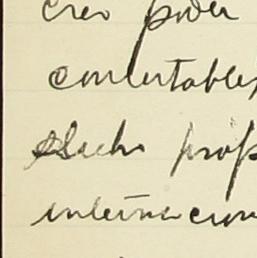 creo poder
contestables
dicho prop
internacion